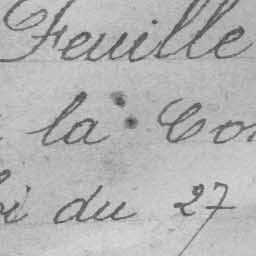 Feuille
la Co
oi du 27